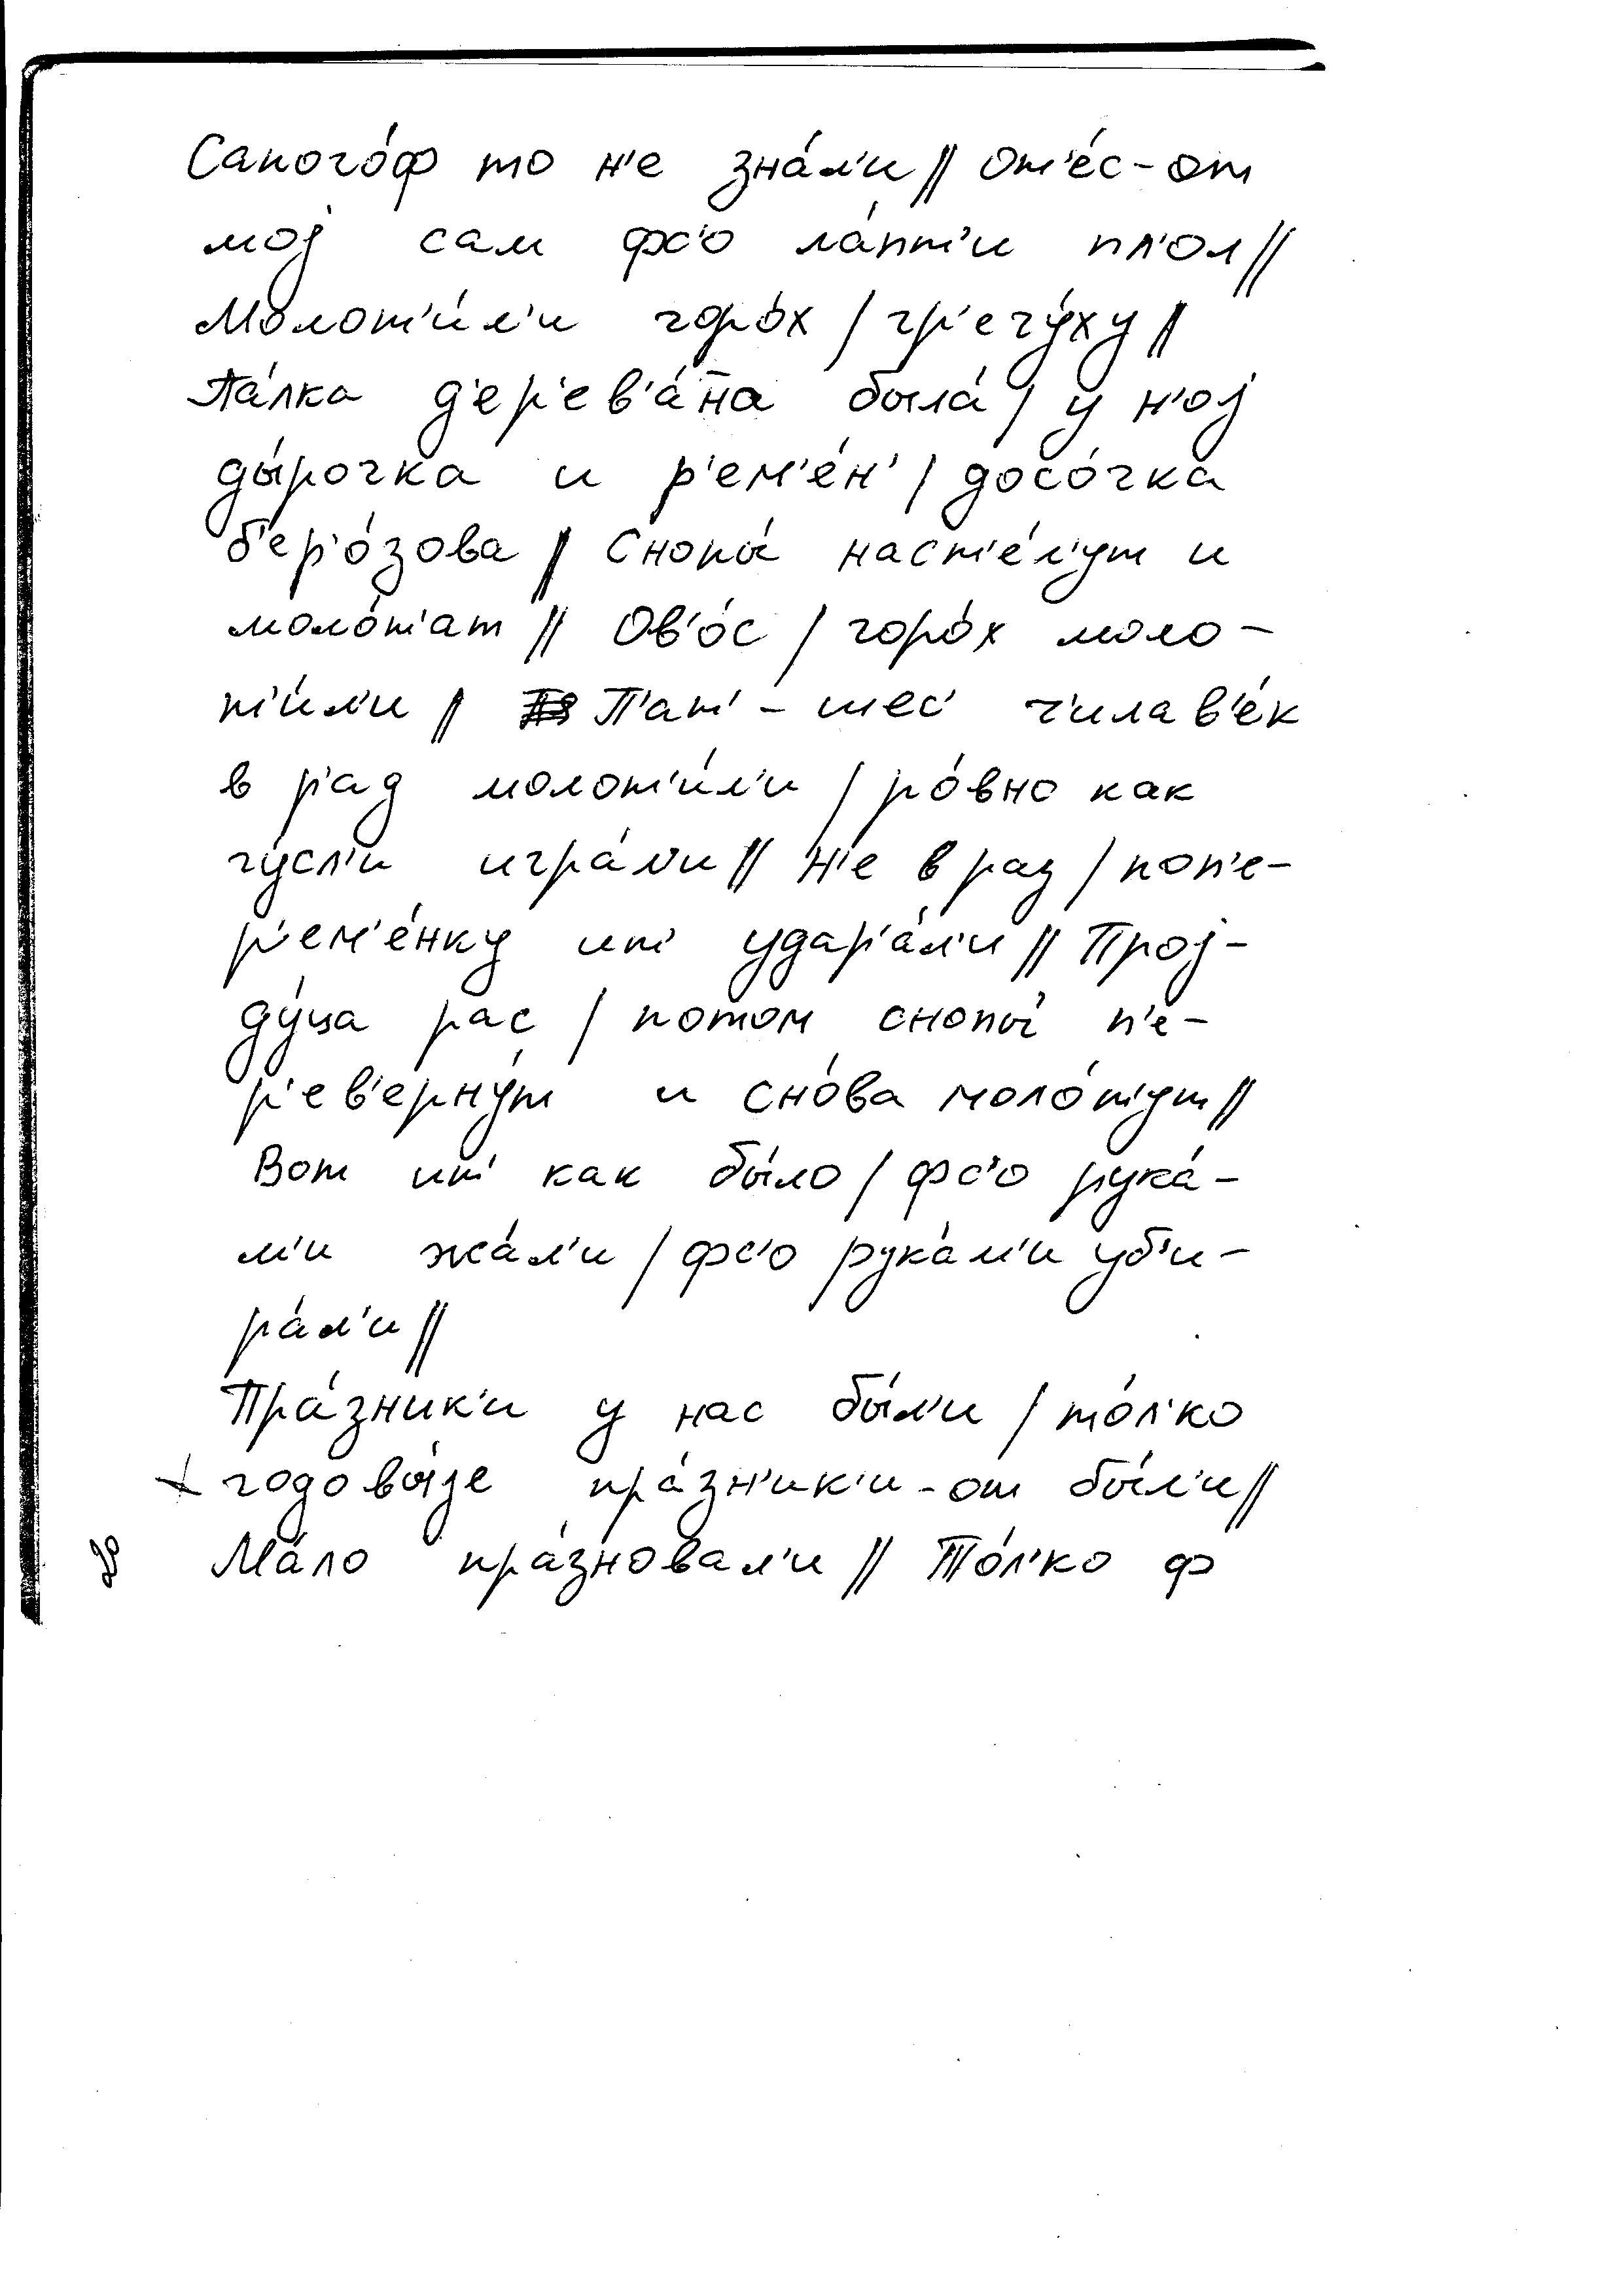 Сапого́ф то н'е зна́л'и // От'е́с-от
мој сам фс'о ла́пт'и пл'ол //
Молот'и́л'и горо́х / гр'ечу́ху //
Па́лка д'ер'ев'а́н̄а была́ / у н'ој
ды́рочка и р'ем'е́н' / досо́чка
б'ер'о́зова // Снопы́ наст'е́л'ут и
моло́т'ат // Ов'о́с / горо́х моло-
т'и́л'и // П'ат'-шес' ч'илав'е́к
в р'ад молот'и́л'и / ро́вно как
гу́сл'и игра́л'и // Н'е в раз / поп'е-
р'ем'е́нку ит' удар'а́л'и // Прој-
ду́ца рас / потом снопы́ п'е-
р'ев'ерну́т и сно́ва моло́т'ут //
Вот ит' как бы́ло / фс'о рука́-
м'и жа́л'и / фс'о рука́м'и уб'и-
ра́л'и //
Пра́зник'и у нас бы́л'и / то́л'ко
годовы́је пра́зн'ик'и-от бы́л'и //
Ма́ло пра́зновал'и // То́л'ко ф